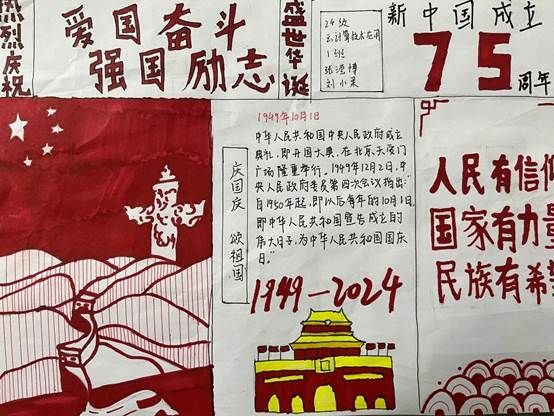 热烈庆祝
爱国奋斗
强国励志
盛世华诞
24级
云计算技术应用
1班
新中国成立
75周年
1949年10月1日
中华人民共和国中央人民政府成立
典礼,即开国大典,在北京天安门
广场隆重举行。1949年12月2日,中
央人民政府委员第四次会议指出:“
自1950年起,即以后每年的10月1日,
即中华人民共和国宣告成立的
伟大日子,为中华人民共和国国庆
日。”
庆国庆 颂祖国
1949—2024
人民有信仰
国家有力量
民族有希望